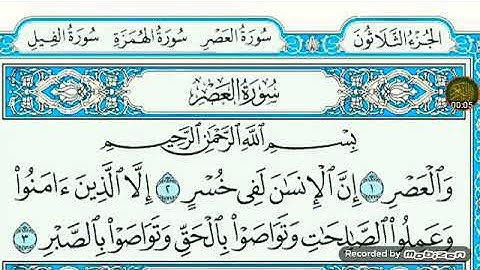 الجُزْءُ الثَّلَاثُونَ سُورَةُ العَصْرِ سُورَةُ الهُمَزَةِ سُورَةُ الفِيلِ
سُورَةُ العَصْرِ
00:05
بِسْمِ اللَّهِ الرَّحْمَٰنِ الرَّحِيمِ
وَالْعَصْرِ ١ إِنَّ الْإِنسَانَ لَفِي خُسْرٍ ٢ إِلَّا الَّذِينَ ءَامَنُوا۟
وَعَمِلُوا۟ الصَّٰلِحَٰتِ وَتَوَاصَوْا۟ بِالْحَقِّ وَتَوَاصَوْا۟ بِالصَّبْرِ ٣
Recorded by
mobizen